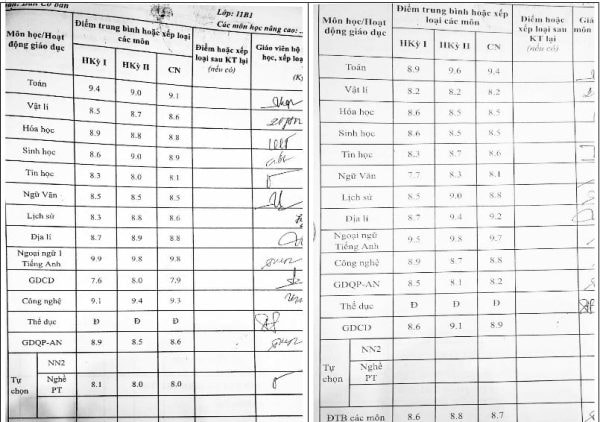 Ban: Ban Cơ bản
Lớp: 11B1
Các môn học nâng cao:
Môn học/Hoạt động giáo dục
Điểm trung bình hoặc xếp loại các môn
HKỳ I HKỳ II CN
Điểm hoặc xếp loại sau KT lại (nếu có)
Giáo viên bộ
học, xếp loại
(K
Toán 9.4 9.0 9.1
Vật lí 8.5 8.7 8.6
Hóa học 8.9 8.8 8.8
Sinh học 8.6 9.0 8.9
Tin học 8.3 8.0 8.1
Ngữ Văn 8.5 8.5 8.5
Lịch sử 8.3 8.8 8.6
Địa lí 8.7 8.9 8.8
Ngoại ngữ 1
Tiếng Anh 9.9 9.8 9.8
GDCD 7.6 8.0 7.9
Công nghệ 9.1 9.4 9.3
Thể dục Đ Đ Đ
GDQP-AN 8.9 8.5 8.6
Tự chọn
NN2
Nghề PT 8.1 8.0 8.0
Môn học/Hoạt động giáo dục
Điểm trung bình hoặc xếp loại các môn
HKỳ I HKỳ II CN
Điểm hoặc xếp loại sau KT lại (nếu có)
Giá
môn
Toán 8.9 9.6 9.4
Vật lí 8.2 8.2 8.2
Hóa học 8.6 8.5 8.5
Sinh học 8.6 8.5 8.5
Tin học 8.3 8.7 8.6
Ngữ Văn 7.7 8.3 8.1
Lịch sử 8.5 9.0 8.8
Địa lí 8.7 9.4 9.2
Ngoại ngữ
Tiếng Anh 9.5 9.8 9.7
Công nghệ 8.9 8.7 8.8
GDQP-AN 8.5 8.1 8.2
Thể dục Đ Đ Đ
GDCD 8.6 9.1 8.9
Tự chọn
NN2
Nghề PT
ĐTB các môn 8.6 8.8 8.7